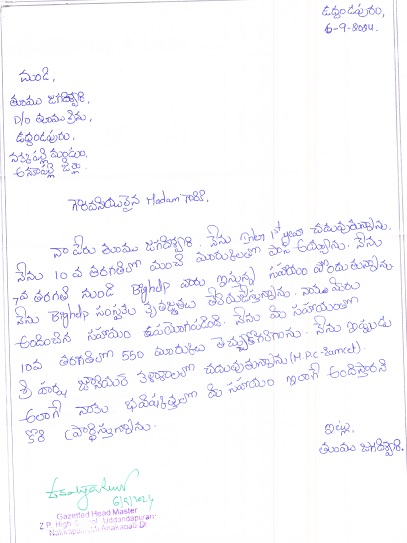 ఉద్దండపురం,
6-9-2024.
నుండి,
తుము జగదీశ్వరి,
D/o తుము శ్రీను,
ఉద్దండపురం,
నక్కపల్లి మండలం,
అనకాపల్లి జిల్లా.
గౌరవనీయులైన Madam గారికి,
నా పేరు తుము జగదీశ్వరి. నేను Inter 1st year చదువుతున్నాను.
నేను 10వ తరగతిలో మంచి మార్కులతో పాస్ అయ్యాను. నేను
7వ తరగతి నుండి Bighelp వారు ఇస్తున్న సహాయం పొందుతున్నాను
నేను Bighelp సంస్థకు కృతజ్ఞతలు తెలియచేస్తున్నాను. నాకు మీరు
అందించిన సహాయం ఉపయోగపడింది. నేను మీ సహాయంతో
10వ తరగతిలో 550 మార్కులు తెచ్చుకోగలిగాను. నేను ఇప్పుడు
శ్రీ జూనియర్ కళాశాలలో చదువుతున్నాను (M.P.C-Eamcet).
అలాగే నాకు భవిష్యత్తులో మీ సహాయం ఇలాగే అందిస్తారని
కోరి ప్రార్థిస్తున్నాను.
ఇట్లు,
తుము జగదీశ్వరి.
6/9/2024
Gazetted Head Master
Z.P. High School, Uddandapuram
Nakkapalli, Anakapalli Dt